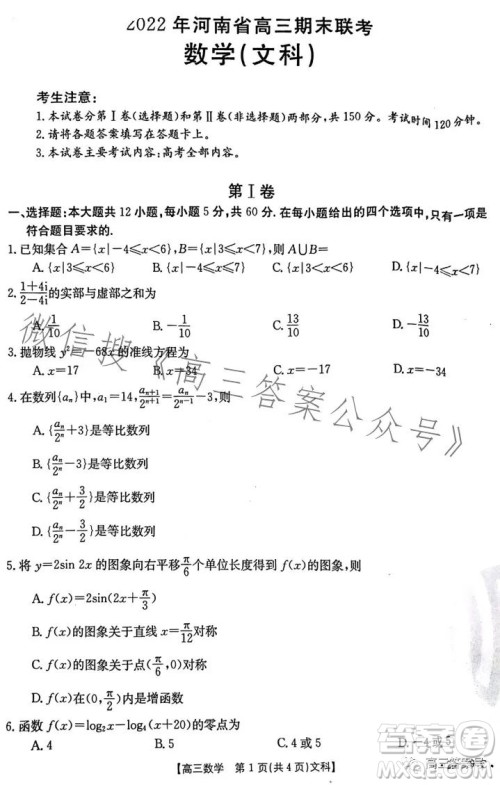 2022年河南省高三期末联考
数学(文科)
考生注意:
1.本试卷分第Ⅰ卷(选择题)和第Ⅱ卷(非选择题)两部分,共150分。考试时间120分钟。
2.请将各题答案填写在答题卡上。
3.本试卷主要考试内容:高考全部内容。
第Ⅰ卷
一、选择题:本大题共12小题,每小题5分,共60分.在每小题给出的四个选项中,只有一项是
符合题目要求的.
1.已知集合A={x|-4⩽x<6},B={x|3⩽x<7},则A∪B=
A.{x|3⩽x<6} B.{x|-4⩽x<7} C.{x|3⩽x<7} D.{x|-4⩽x<6}
2.(1+4i)/(2-4i)的实部与虚部之和为
A.1/10 B.-1/10 C.13/10 D.-13/10
3.抛物线y²=-68x的准线方程为
A.x=17 B.x=34 C.x=-17 D.x=-34
4.在数列{aₙ}中,a₁=14,aₙ₊₁/2ⁿ⁺¹=aₙ/2ⁿ⁻¹-3,则
A.{aₙ/2ⁿ+3}是等比数列
B.{aₙ/2ⁿ-3}是等比数列
C.{aₙ/2ⁿ+3/2}是等比数列
D.{aₙ/2ⁿ-3/2}是等比数列
5.将y=2sin 2x的图象向右平移π/6个单位长度得到f(x)的图象,则
A.f(x)=2sin(2x+π/3)
B.f(x)的图象关于直线x=π/12对称
C.f(x)的图象关于点(π/6,0)对称
D.f(x)在(0,π/2)内是增函数
6.函数f(x)=log₂x-log₄(x+20)的零点为
A.4 B.5 C.4或5 D.-4或5
【高三数学 第1页(共4页)文科】
微信搜《高三答案公众号》